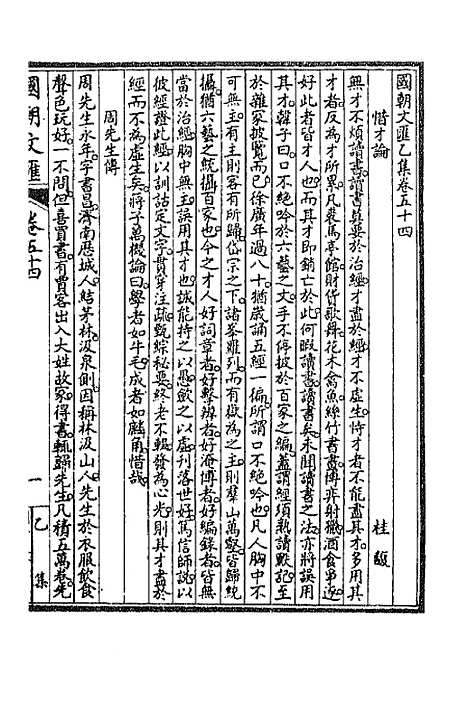 國朝文匯乙集卷五十四
惜才論 桂馥
無才不煩讀書讀書莫要於治經才盡於經才不虛生恃才者不能盡其才多用其
才者反為才所累凡裘馬亭館財貨歌舞花木禽魚絲竹書畫博弈射獵酒食爭逐
好此者皆才人也而其才即銷亡於此何暇讀書讀書矣未聞讀書之法亦將誤用
其才韓子曰口不絕吟於六藝之文手不停披於百家之編蓋謂經須熟讀默記至
於雜家披覽而已徐廣年過八十猶歲誦五經一徧所謂口不絕吟也凡人胸中不
可無主有主則客有所歸岱宗之下諸峯雖列而有嶽為之主則羣山萬壑皆歸統
攝猶六藝之統攝百家也今之才人好詞章者好擊辨者好淹博者好編錄者皆無
當於治經胸中無主誤用其才也誠能持之以愚斂之以虛刊落世好篤信師說以
彼經證此經以訓詁定文字貫穿注疏甄綜秘要終老不輟發為心光則其才盡於
經而不為虛生矣蔣子萬機論曰學者如牛毛成者如麟角惜哉
周先生傳
周先生永年字書昌濟南歷城人結茅林汲泉側因稱林汲山人先生於衣服飲食
聲色玩好一不問但喜買書有賈客出入大姓故家得書輒歸先生凡積五萬卷先
國朝文匯 卷五十四 一 乙集